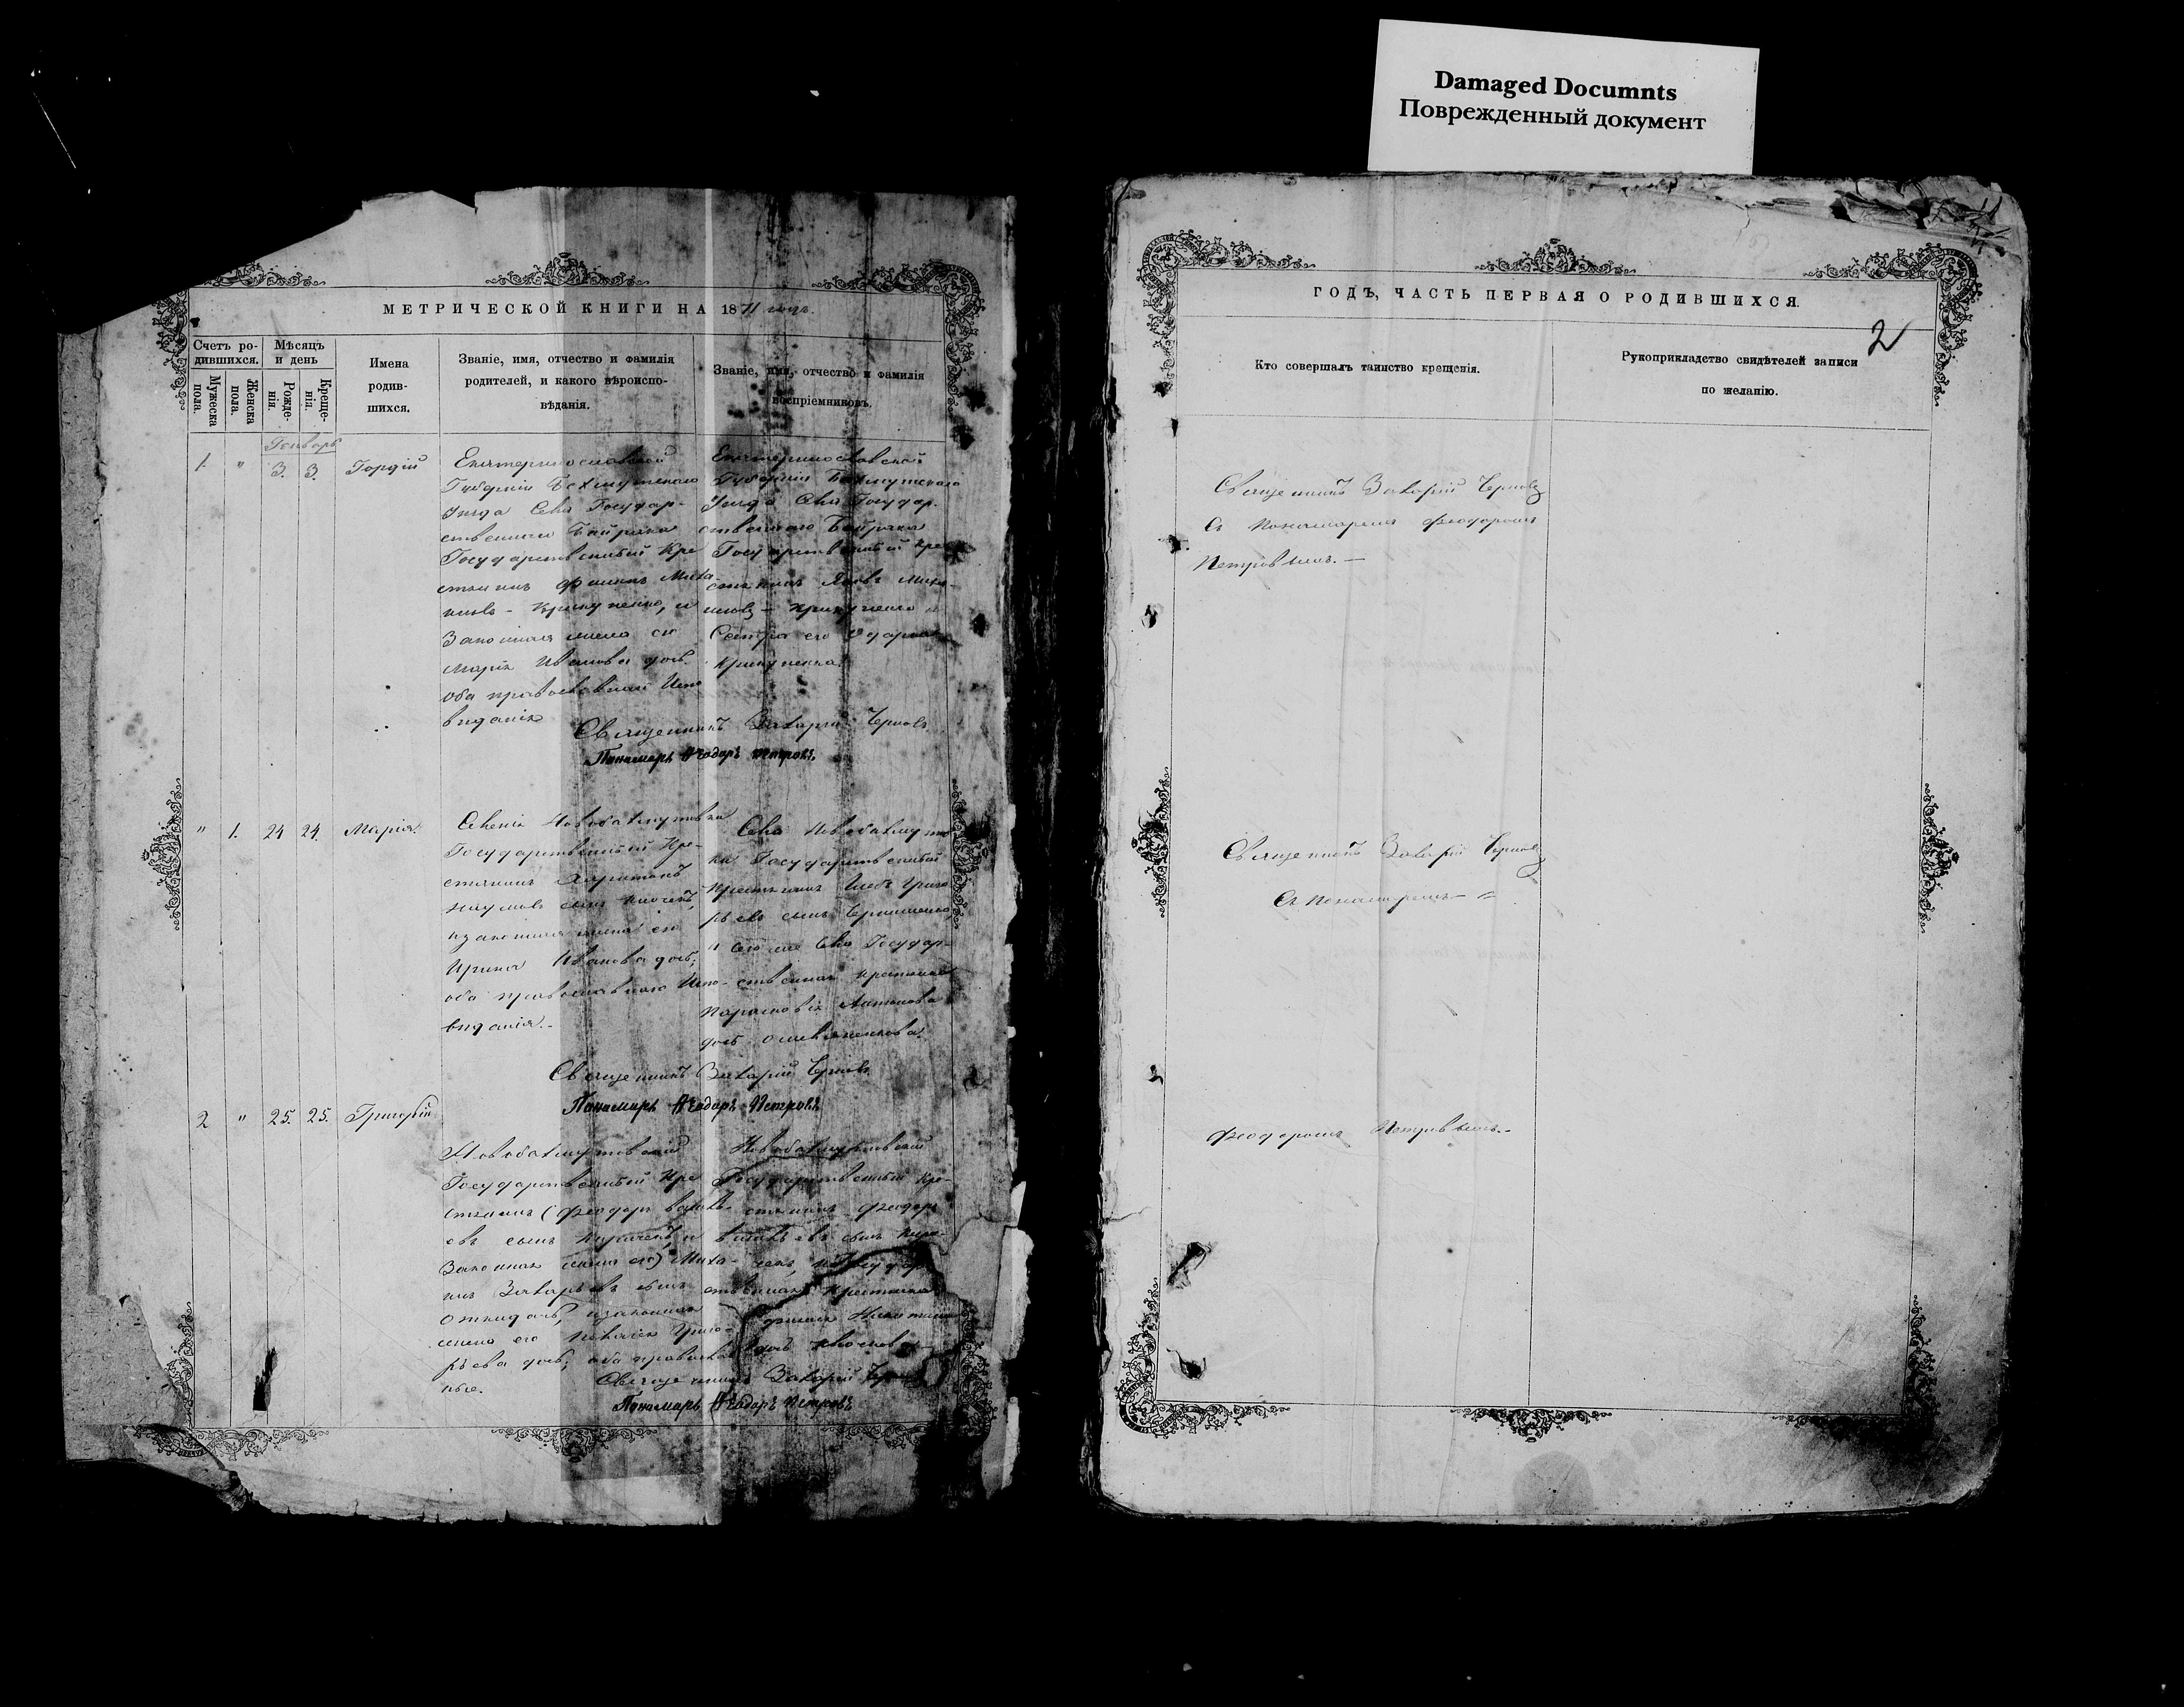 Damaged Documnts
Поврежденный документ
МЕТРИЧЕСКОЙ КНИГИ НА 1871 годъ.
Счетъ ро-
дившихся.
Мужеска
пола.
Женска
пола.
Мѣсяцъ
и день
Рожде-
нія.
Креще-
нія.
Имена
родив-
шихся.
Званіе, имя, отчество и фамилія
родителей, и какого вѣроиспо-
вѣданія.
Званіе, имя, отчество и фамилія
воспріемниковъ.
Генварь
1. " 3. 3. Гордій
Екатеринославской
Губерніи Бахмутскаго
Уѣзда Села Государ-
ственнаго Байрака
Государственный Кре
стьянинъ Филипъ Миха-
иловъ - Крикуненко, и
Законная жена его
Марія Иванова доч.
оба православнаго Испо
вѣданія
Екатеринославской
Губерніи Бахмутскаго
Уѣзда Села Государ-
ственнаго Байрака
Государственный Кре-
стьянинъ Яковъ Миха-
иловъ - Крикуненко и
Сестра его Дарья
Крикуненкова.
Священникъ Захарій Черновъ
Панамарь Ѳѣодаръ Петровъ
" 1. 24 24. Марія.
Селенія Новобахмутовки
Государственный Кре-
стьянинъ Харитонъ
Наумовъ сынъ
и законная жена его
Ирина Иванова доч;
оба православнаго Испо-
вѣданія.-
Села Новобахмутов
ки Государственный
Крестьянинъ Глебъ Григо
рьевъ сынъ
и того же Села Государ-
ственная Крестьянка
Парасковія Антонова
доч
Священникъ Захарій Черновъ
Панамарь Ѳѣодаръ Петровъ
2 " 25. 25. Григорій
Новобахмутовскій
Государственный Кре
стьянинъ (Феодоръ Василь-
евъ сынъ и
Законная жена его) Миха-
илъ Захарьевъ сынъ
и законная
жена его Григо-
рьева доч; оба православ
ные.
Новобахмутовскій
Государственный Кре-
стьянинъ Феодоръ
Васильевъ сынъ
и Государ
ственная Крестьянка
доч
Священникъ Захарій Черновъ
Панамарь Ѳѣодаръ Петровъ
ГОДЪ, ЧАСТЬ ПЕРВАЯ О РОДИВШИХСЯ.
2
Кто совершалъ таинство крещенія.
Рукоприкладство свидѣтелей записи
по желанію.
Священникъ Захарій Черновъ
Съ Понамаремъ Феодоромъ
Петровымъ.—
Священникъ Захарій Черновъ
Съ Понамаремъ—
Феодоромъ Петровымъ.-